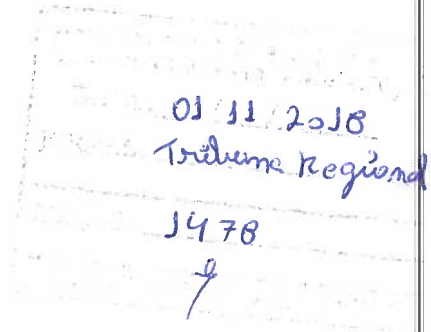 01 11 2018
Tribuna Regional
1478